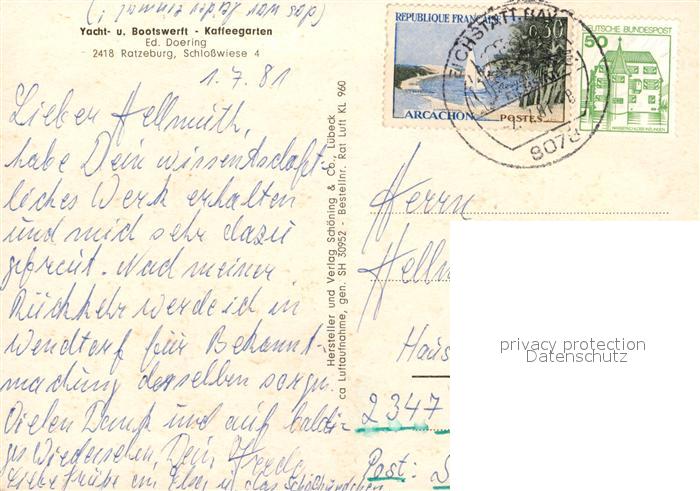 Yacht- u. Bootswerft - Kaffeegarten
Ed. Doering
2418 Ratzeburg, Schloßwiese 4
1.7.81
Lieber Hellmuth,
habe Dein wissentschaft-
liches Werk erhalten
und mich sehr dazu
gefreut. Nach meiner
Rückkehr werde ich in
Wendtorf für Bekannt-
machung desselben sorgen.
Vielen Dank und auf baldi-
ges Wiedersehen. Dein
Liebe Grüße an Else u. das
Hersteller und Verlag Schöning & Co., Lübeck
ca Luftaufnahme, gen. SH 30952 - Bestellnr. Rat Luft KL 960
REPUBLIQUE FRANÇAISE
0,30
ARCACHON
POSTES
EICHSTÄTT, BAY
8078
DEUTSCHE BUNDESPOST
50
Herrn
Hellm
Haus
2347
Post:
privacy protection
Datenschutz